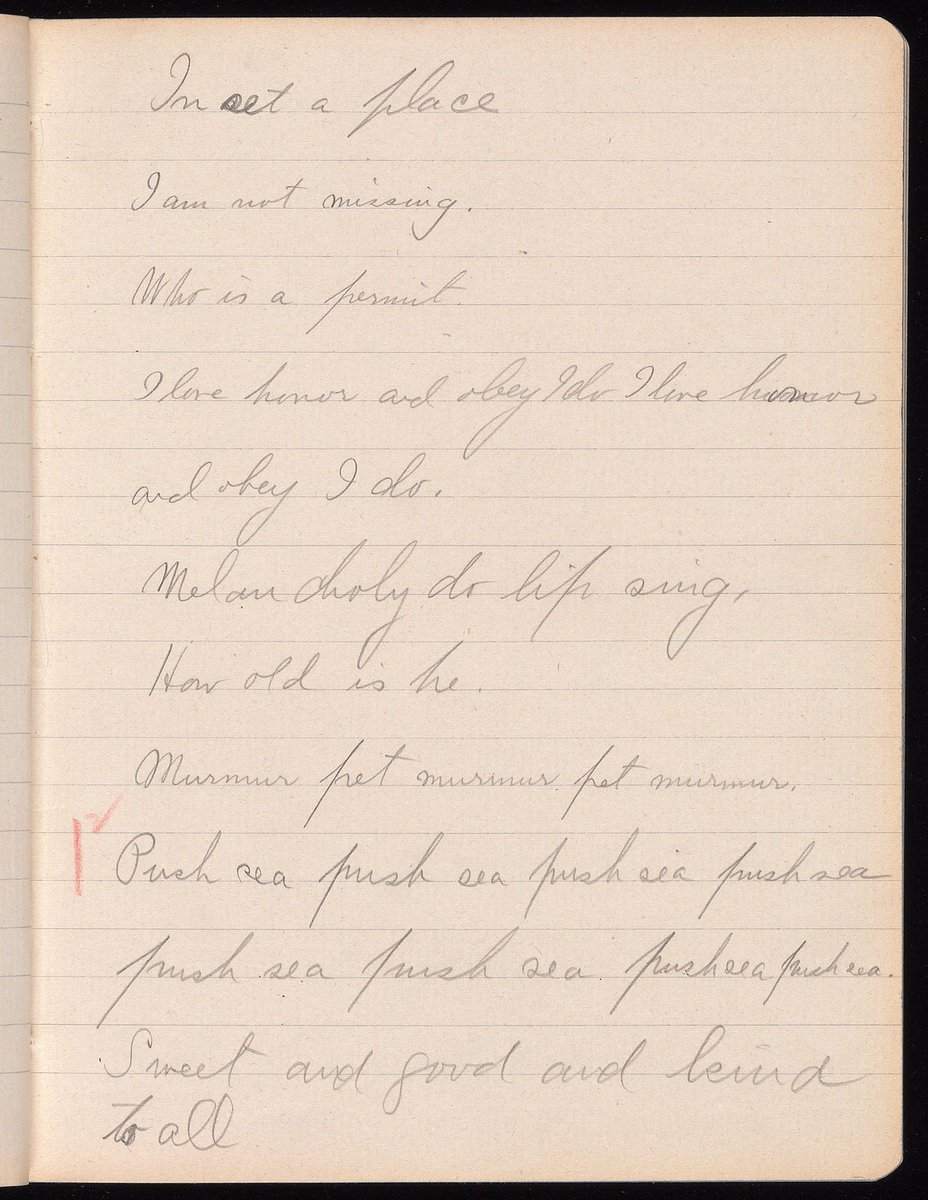 In set a place
I am not missing.
Who is a permit.
I love honor and obey I do I love honor
and obey I do.
Melancholy do lip sing,
How old is he.
Murmur pet murmur pet murmur.
Push sea push sea push sea push sea
push sea push sea push sea push sea.
Sweet and good and kind
to all